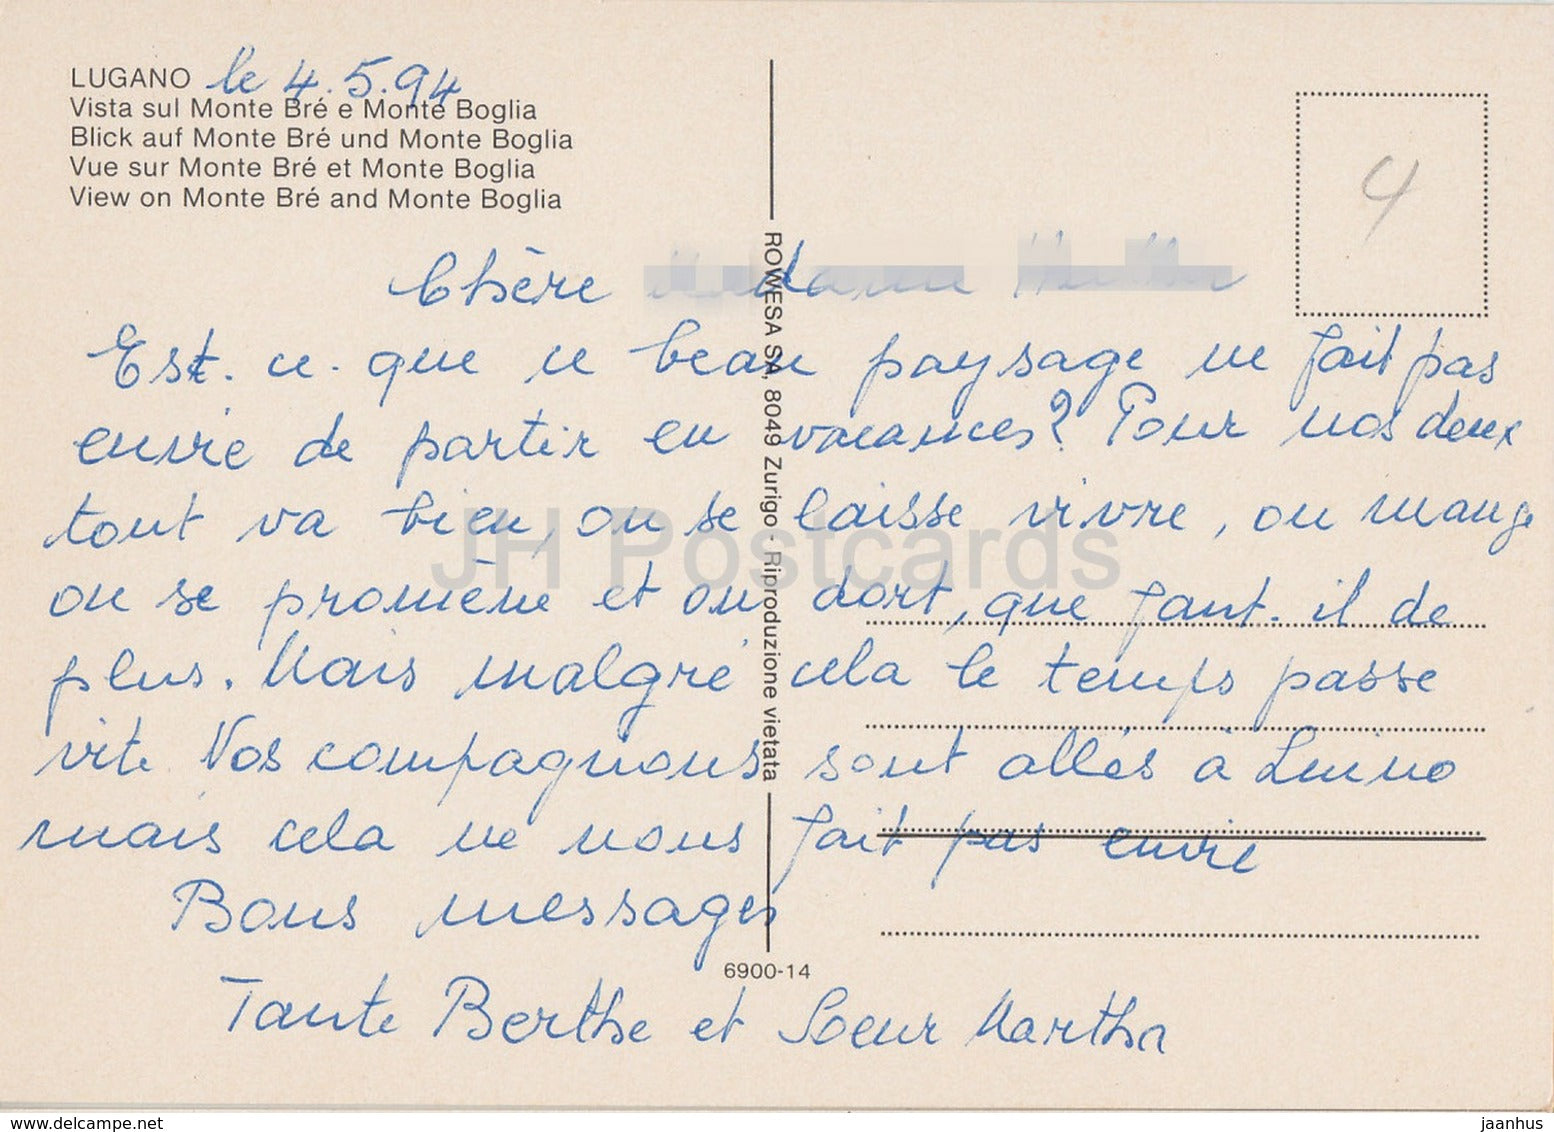 LUGANO le 4.5.94
Vista sul Monte Bré e Monte Boglia
Blick auf Monte Bré und Monte Boglia
Vue sur Monte Bré et Monte Boglia
View on Monte Bré and Monte Boglia
4
Chère
Est-ce-que ce beau paysage ne fait pas
envie de partir en vacances? Pour nos deux
tout va bien, on se laisse vivre, on mange
on se promène et on dort, que faut-il de
plus. Mais malgré cela le temps passe
vite Nos compagnons sont allés à Luino
mais cela ne nous fait pas envie
Bons messages
Tante Berthe et Soeur Martha
ROWESA SA, 8049 Zurigo - Riproduzione vietata
6900-14
JH Postcards
delcampe.net
jaanhus